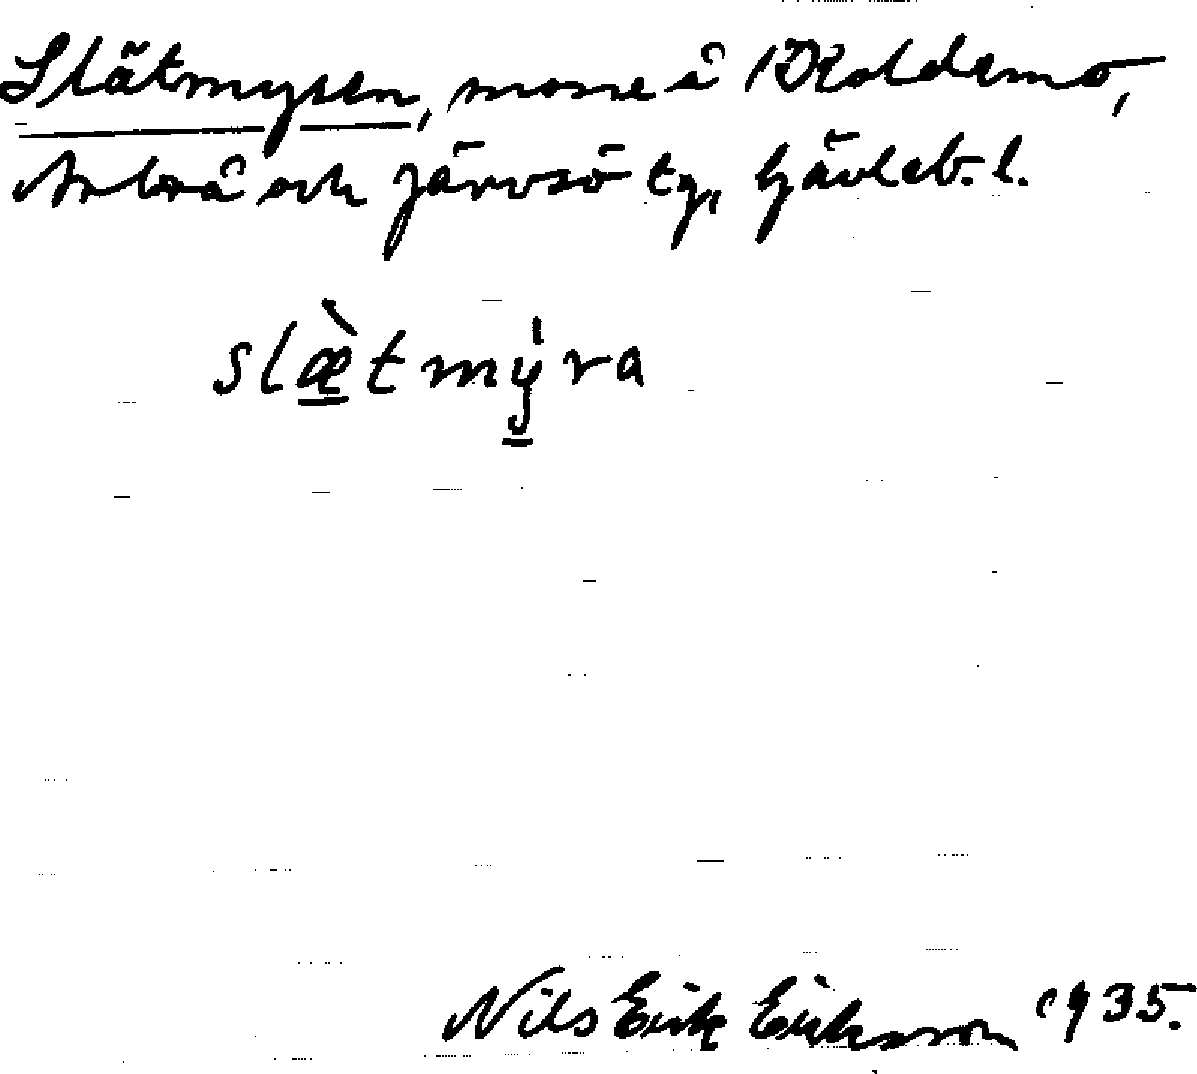 Slätmyren, mosse å Koldemo,
Arbrå och Järvsö tg, Gävleb. l.
slæ̀tmy̍ra
Nils Erik Eriksson 1935.